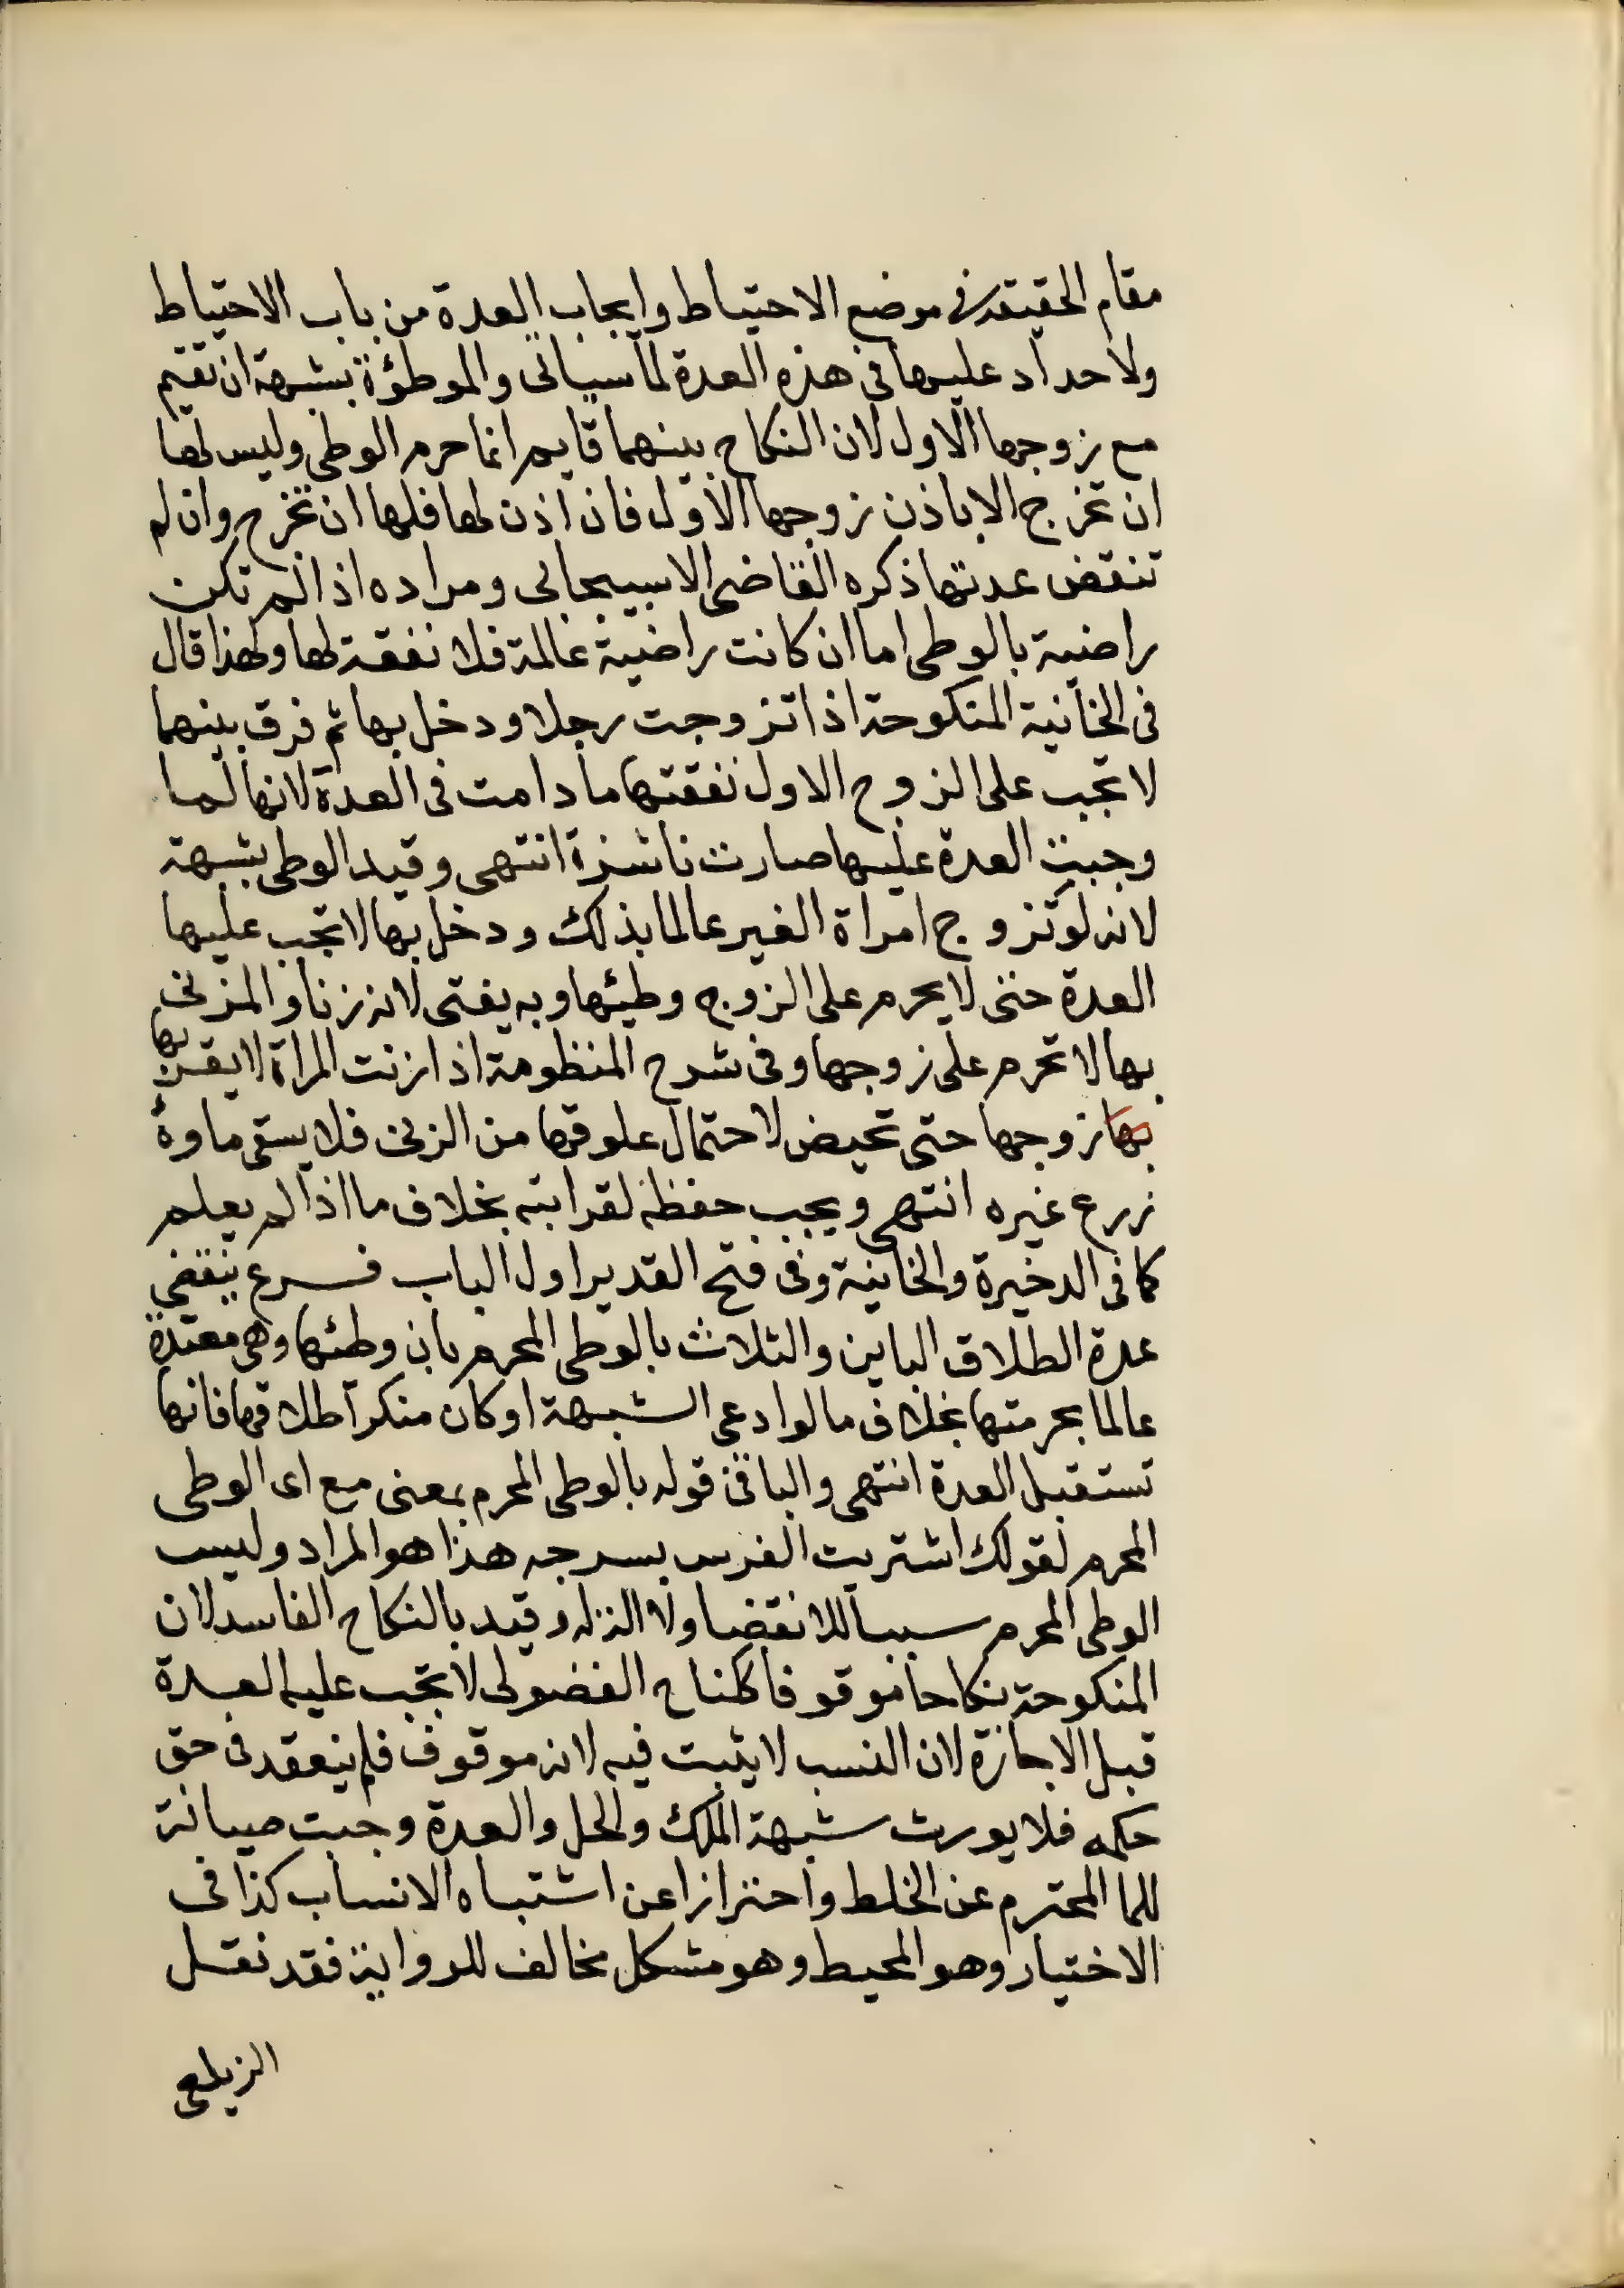 مقام الحقيقة فى موضع الاحتياط وايجاب العدة من باب الاحتياط
ولا حداد عليها فى هذه العدة لما سياتى والموطؤة بشبهة ان تقيم
مع زوجها الاول لان النكاح بينهما قايم انما حرم الوطى وليس لها
ان تخرج الا باذن زوجها الاول فان اذن لها فلها ان تخرج وان لم
تنقض عدتها ذكره القاضى الاسبيجابى ومراده اذا لم تكن
راضية بالوطى اما ان كانت راضية عالمة فلا نفقة لها ولهذا قال
فى الخانية المنكوحة اذا تزوجت رجلا ودخل بها ثم فرق بينهما
لا تجب على الزوج الاول نفقتها ما دامت فى العدة لانها لما
وجبت العدة عليها صارت ناشزة انتهى وقيد الوطى بشبهة
لانه لو تزوج امراة الغير عالما بذلك ودخل بها لا تجب عليها
العدة حتى لا يحرم على الزوج وطيئها وبه يفتى لانه زنا والمزنى
بها لا تحرم على زوجها وفى شرح المنظومة اذا زنت المراة لا يقربها
بها زوجها حتى تحيض لاحتمال علوقها من الزنى فلا يسقى ماوه
زرع غيره انتهى ويجب حفظه لقرابته بخلاف ما اذا لم يعلم
كما فى الدخيرة والخانية وفى فتح القدير اول الباب فرع ينقضي
عدة الطلاق الباين والثلاث بالوطى المحرم بان وطئها وهى معتدة
عالما بحرمتها بخلاف ما لو ادعى الشبهة او كان منكرا طلاقها فانها
تستقبل العدة انتهى والبا فى قوله بالوطى المحرم بمعنى مع اى الوطى
المحرم لقولك اشتريت الفرس بسرجه هذا هو المراد وليس
الوطى المحرم سببا للانقضا ولا النزله وقيد بالنكاح الفاسد لان
المنكوحة نكاحا موقوفا كلناح الفضولى لا تجب عليه العدة
قبل الاجازة لان النسب لا يثبت فيه لانه موقوف فلم ينعقد فى حق
حكمه فلا يورث شبهة الملك والحل والعدة وجبت صيانة
للما المحترم عن الخلط واحترازا عن اشتباه الانساب كذا فى
الاختيار وهو المحيط وهو مشكل مخالف للرواية فقد نقل
الزيلعى